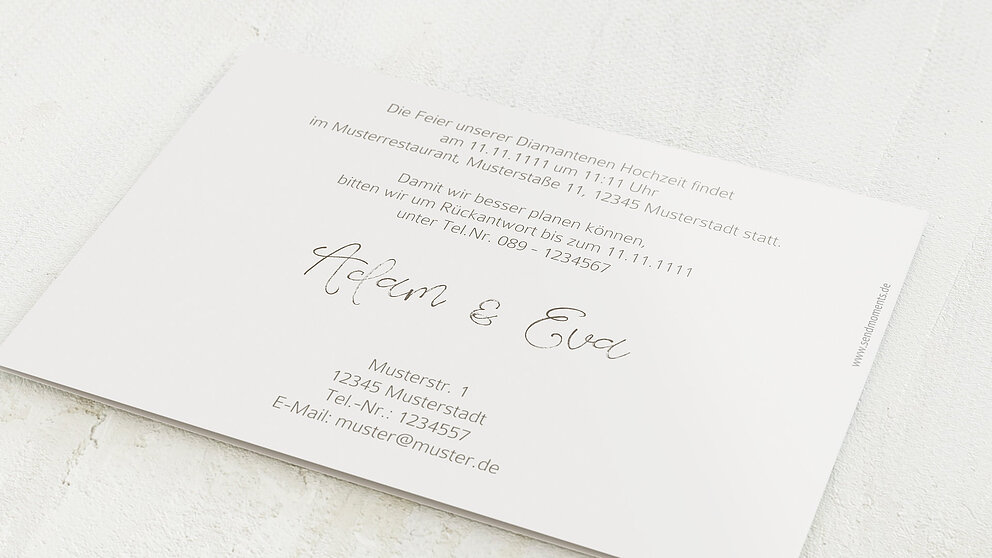 Die Feier unserer Diamantenen Hochzeit findet
am 11.11.1111 um 11:11 Uhr
im Musterrestaurant, Musterstaße 11, 12345 Musterstadt statt.
Damit wir besser planen können,
bitten wir um Rückantwort bis zum 11.11.1111
unter Tel.Nr. 089 - 1234567
Adam & Eva
Musterstr. 1
12345 Musterstadt
Tel.-Nr.: 1234557
E-Mail: muster@muster.de
www.sendmoments.de